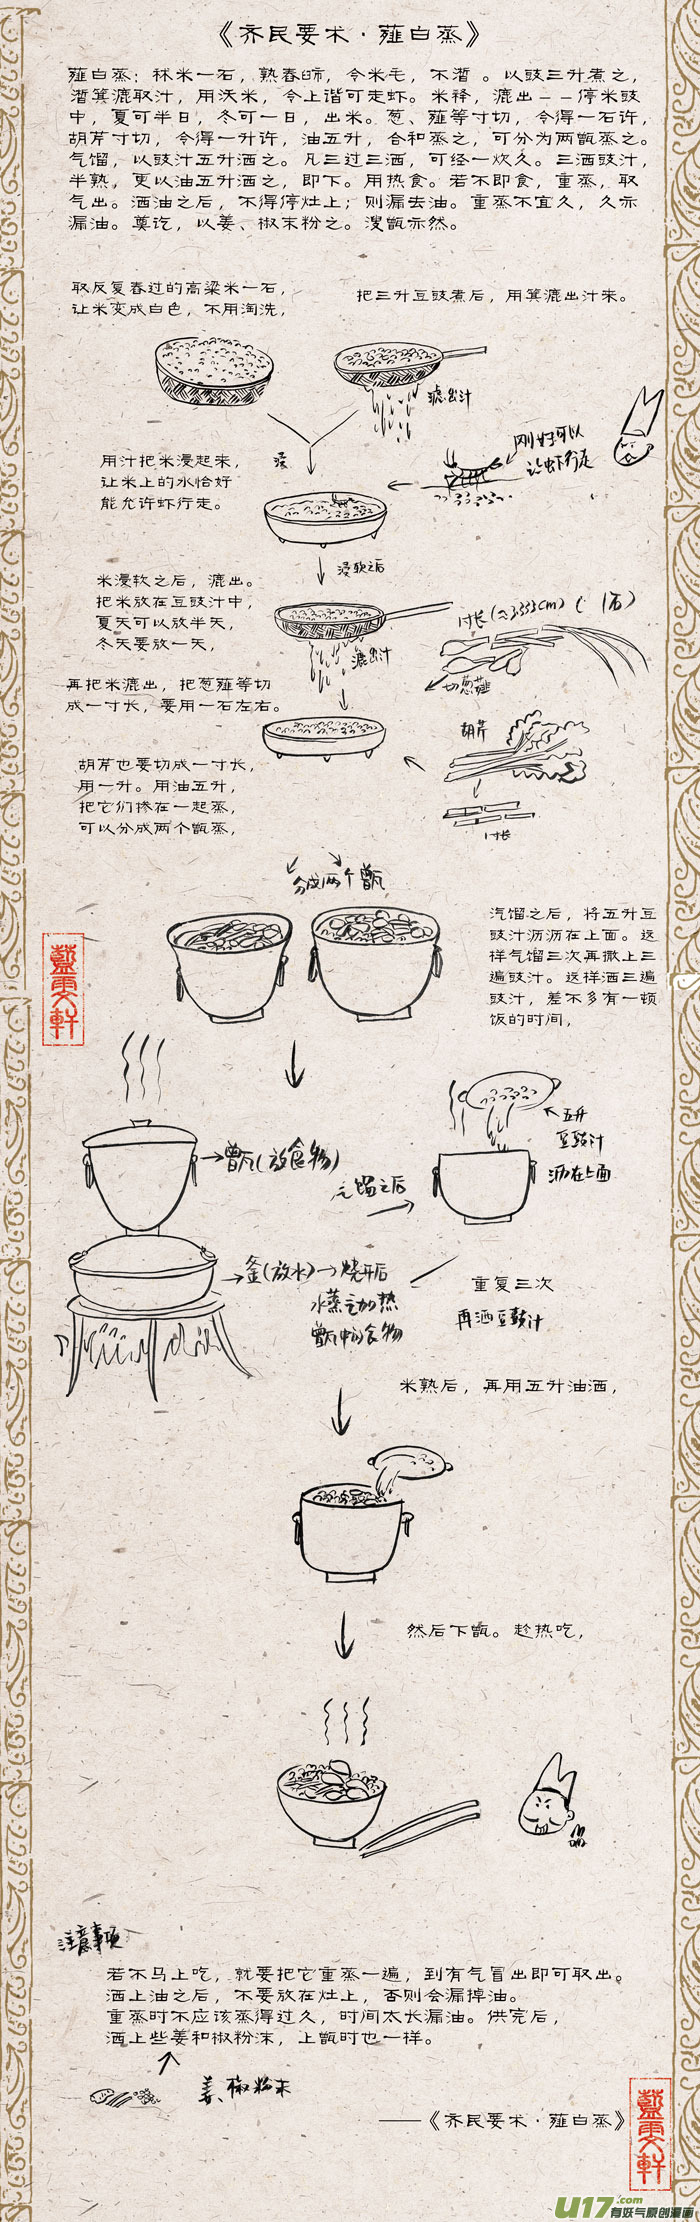 《齐民要术·薤白蒸》
薤白蒸：秫米一石，熟舂𫇴，令米毛，不渻 。以豉三升煮之，
渻箕漉取汁，用沃米，令上谐可走虾。米释，漉出——停米豉
中，夏可半日，冬可一日，出米。葱、薤等寸切，令得一石许，
胡芹寸切，令得一升许，油五升，合和蒸之，可分为两甑蒸之。
气馏，以豉汁五升洒之。凡三过三洒，可经一炊久。三洒豉汁，
半熟，更以油五升洒之，即下。用热食。若不即食，重蒸，取
气出。洒油之后，不得停灶上；则漏去油。重蒸不宜久，久亦
漏油。奠讫，以姜、椒末粉之。溲甑亦然。
取反复舂过的高粱米一石，
让米变成白色，不用淘洗，
把三升豆豉煮后，用箕漉出汁来。
滤出汁
用汁把米浸起来，
让米上的水恰好
能允许虾行走。
浸
刚好可以
让虾行走
浸软之后
米浸软之后，漉出。
把米放在豆豉汁中，
夏天可以放半天，
冬天要放一天，
1寸长(≈3.333cm)(1石)
漉出汁
切葱薤
再把米漉出，把葱薤等切
成一寸长，要用一石左右。
胡芹
胡芹也要切成一寸长，
用一升。用油五升，
把它们掺在一起蒸，
可以分成两个甑蒸，
1寸长
分成两个甑
汽馏之后，将五升豆
豉汁沥沥在上面。这
样气馏三次再撒上三
遍豉汁。这样洒三遍
豉汁，差不多有一顿
饭的时间，
藍雲軒
五升
豆豉汁
沥在上面
甑(放食物)
气馏之后
釜(放水)→烧开后
水蒸气加热
甑中的食物
重复三次
再洒豆豉汁
米熟后，再用五升油洒，
然后下甑。趁热吃，
注意事项
若不马上吃，就要把它重蒸一遍，到有气冒出即可取出。
洒上油之后，不要放在灶上，否则会漏掉油。
重蒸时不应该蒸得过久，时间太长漏油。供完后，
洒上些姜和椒粉沫，上甑时也一样。
姜、椒粉末
——《齐民要术·薤白蒸》
藍雲軒
U17.com
有妖气原创漫画